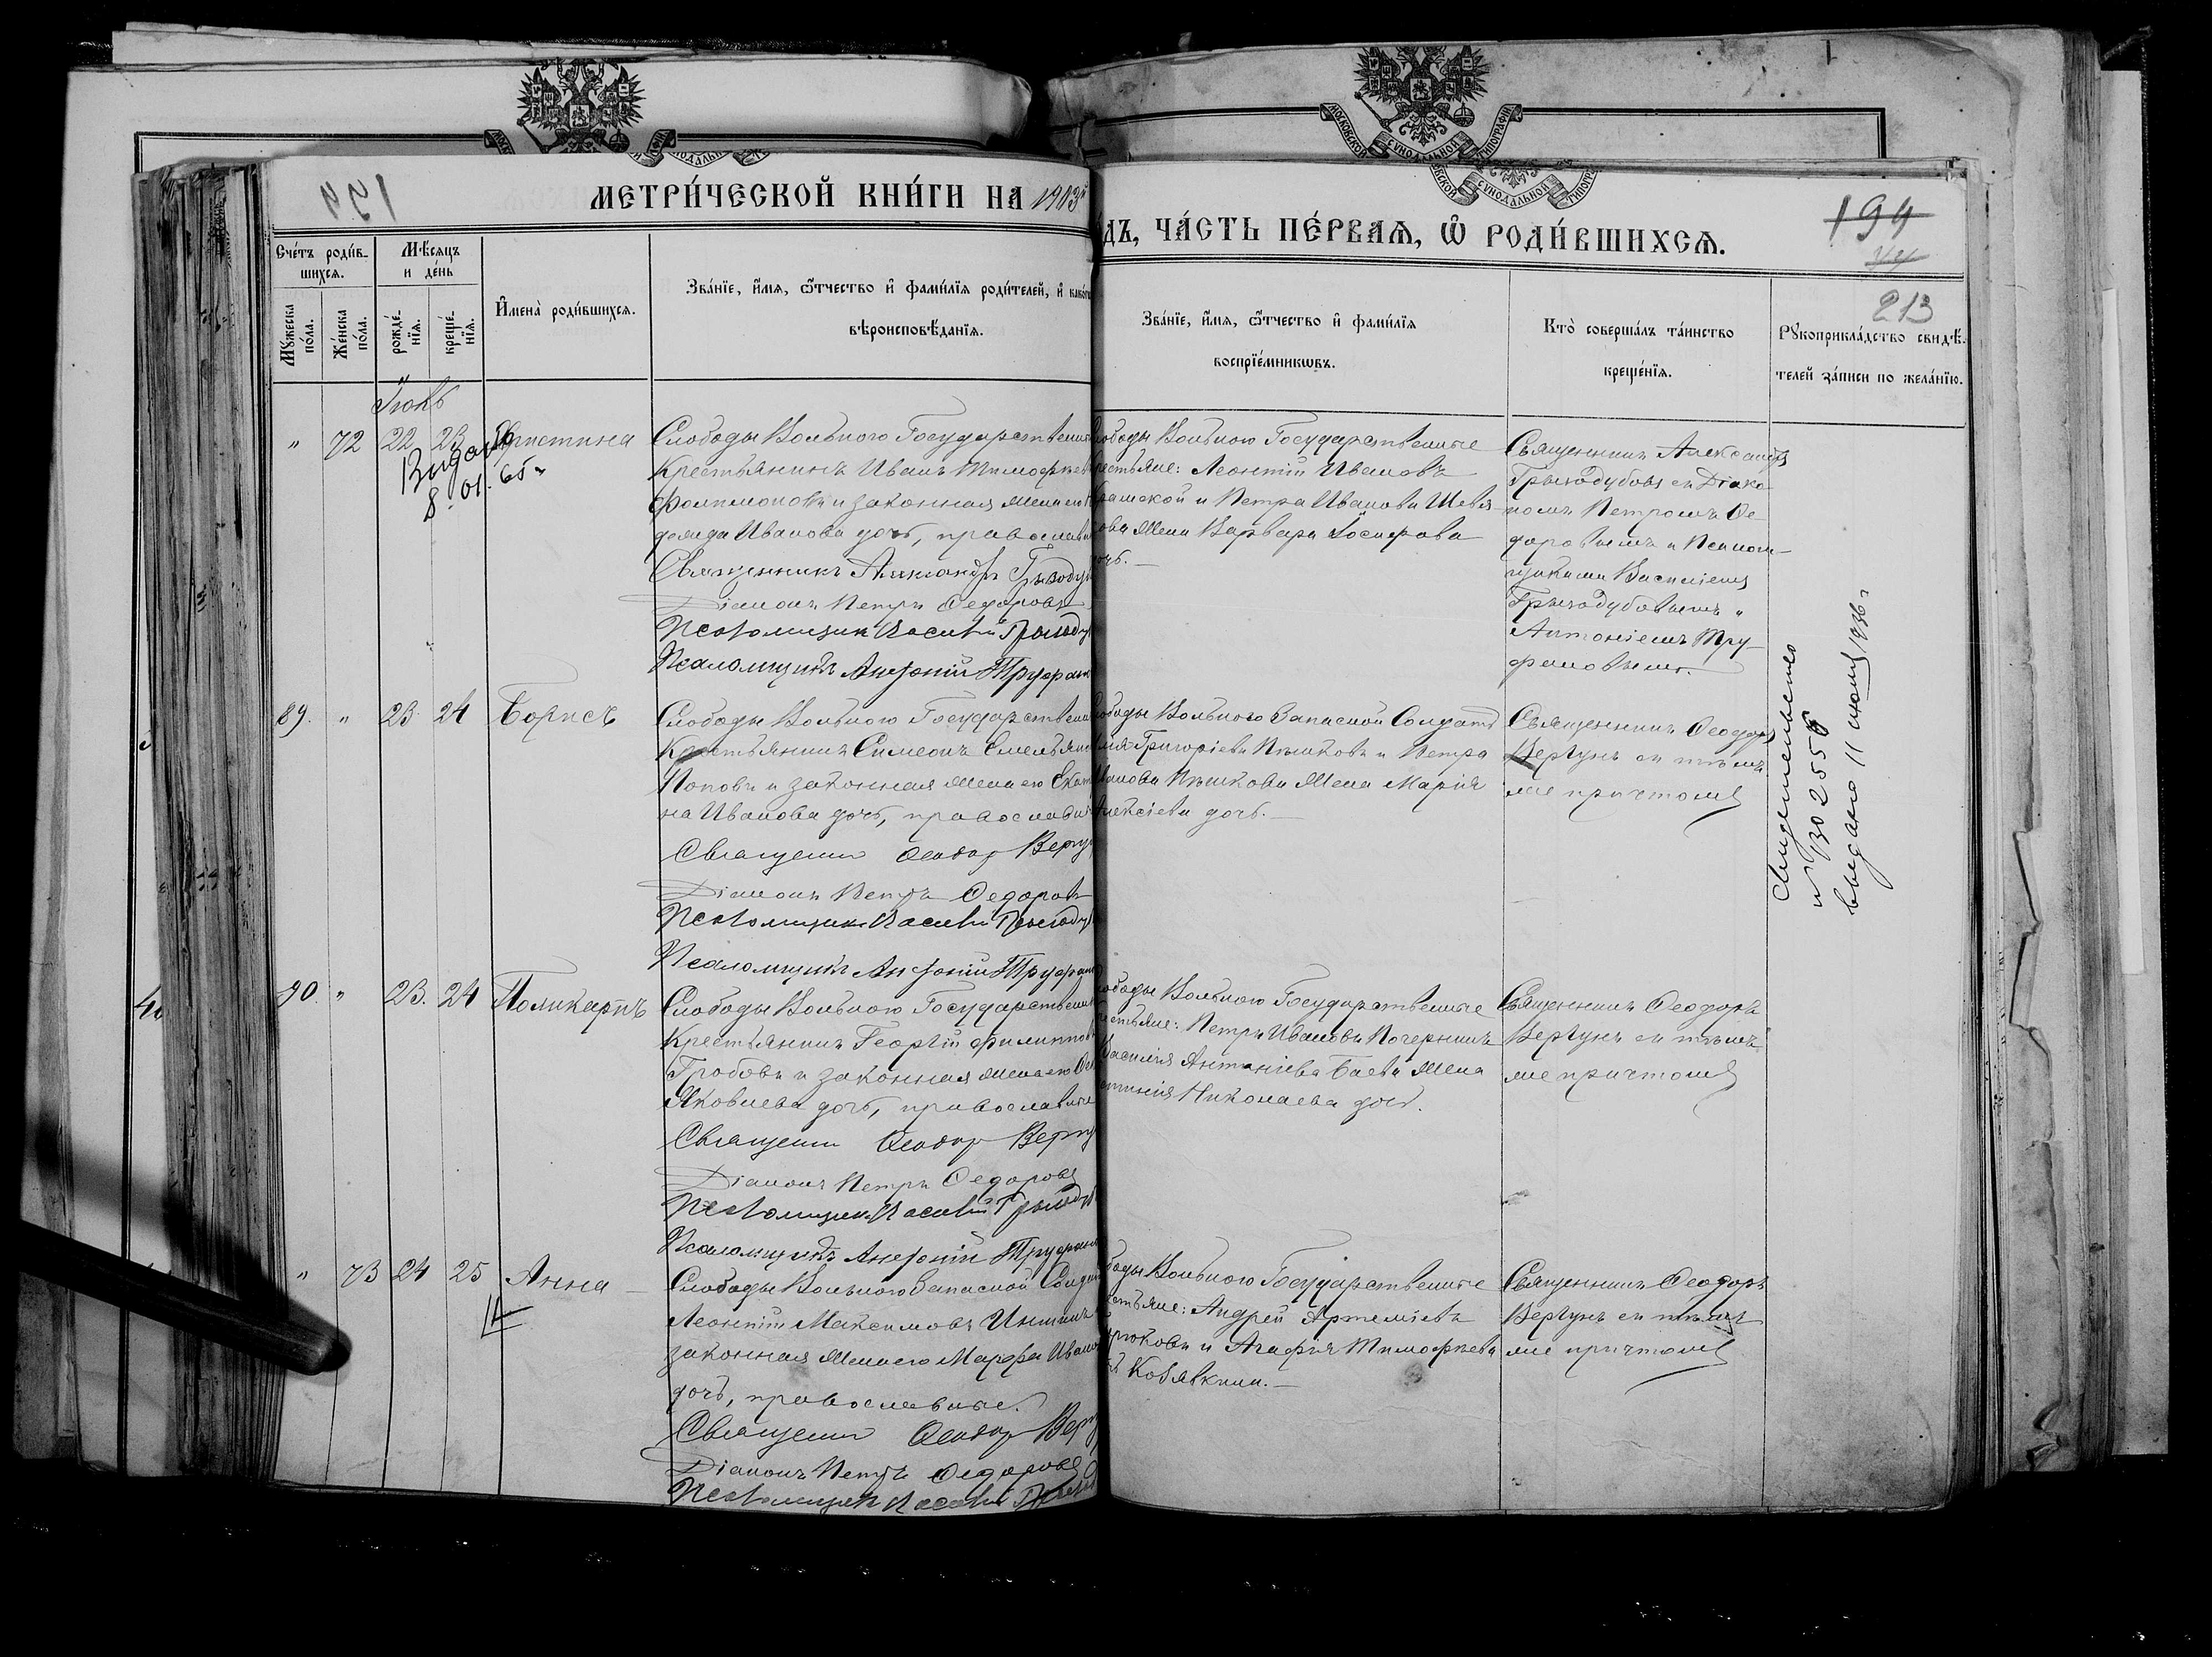 МЕТРИ́ЧЕСКОЙ КНИ́ГИ НА 1903й
ДЪ, ЧА́СТЬ ПЕ́РВАѦ, Ѿ РОДИ́ВШИХСѦ.
194
213
Сче́тъ роди́в-
шихсѧ.
Мѣ́сѧцъ
и де́нь
Мꙋ́жеска по́ла.
Же́нска по́ла.
рожде́-нїѧ.
креще́-нїѧ.
И҆мена̀ роди́вшихсѧ.
Зва́нїе, и҆́мѧ, ѻ҆́тчество и҆ фами́лїѧ роди́телей, и҆
вѣроисповѣ́данїѧ.
Зва́нїе, и҆́мѧ, ѻ҆́тчество и҆ фами́лїѧ
воспрїе́мникѡвъ.
Кто̀ соверша́лъ та́инство
креще́нїѧ.
Рꙋкоприкла́дство свидѣ́-
телей за́писи по жела́нїю.
Іюнь
" 72 22 23 Христина
8. 01. 65г
Слободы Вольного Государственный
Крестьянинъ Иванъ Тимофеев
и законная жена его
Иванова дочь, православн
Священникъ Александръ Грызоду
Діаконъ Петръ Ѳедоровъ
Псаломщик Василій Грызоду
Псаломщикъ Антоній Труфан
ободы Вольного Государственные
рестьяне: Леонтій Ивановъ
и Петра Иванова
жена Варвара Іосифова
очь. —
Священникъ Александръ
Грызодубовъ съ Діако-
номъ Петромъ Ѳе-
доровымъ и Псалом-
щиками Василіемъ
Грызодубовымъ и
Антоніемъ Тру-
фановымъ.
89. " 23. 24 Борисъ
Слободы Вольного Государственн
Крестьянинъ Симеонъ Емельян
Поповъ и законная жена его Екат
на Иванова дочь, православн
Священник Ѳеодор Вергу
Діаконъ Петръ Ѳедоровъ
Псаломщик Василій Грызоду
Псаломщикъ Антоній Труфан
ободы Вольного Запасной Солдатъ
Григоріевъ Пѣшковъ и Петра
ванова Пѣшкова жена Марія
Алексіева дочь. —
Священникъ Ѳеодоръ
Вергунъ съ тѣмъ
же причтомъ
Свидетельство
№ 1302556
выдано 11 июня 1936 г
90. " 23. 24 Поликарпъ
Слободы Вольного Государственн
Крестьянинъ Георгій Филиппов
Гробовъ и законная жена его
Яковлева дочь, православные
Священник Ѳеодор Вергу
Діаконъ Петръ Ѳедоровъ
Псаломщик Василій Грызоду
Псаломщикъ Антоній Труфан
ободы Вольного Государственные
рестьяне: Петръ Ивановъ
Василія Антоніева Баева жена
Николаева дочь.
Священникъ Ѳеодоръ
Вергунъ съ тѣмъ
же причтомъ
" 73 24 25 Анна
Слободы Вольного Запасной Солдат
Леонтій Максимовъ Иншинъ
законная жена его Марфа Ивано
дочь, православные.
Священник Ѳеодор Вергу
Діаконъ Петръ Ѳедоровъ
Псаломщик Василій
боды Вольного Государственные
естьяне: Андрей Артеміевъ
и Агафія Тимофеева
Кобявкина. —
Священникъ Ѳеодоръ
Вергунъ съ тѣмъ
же причтомъ